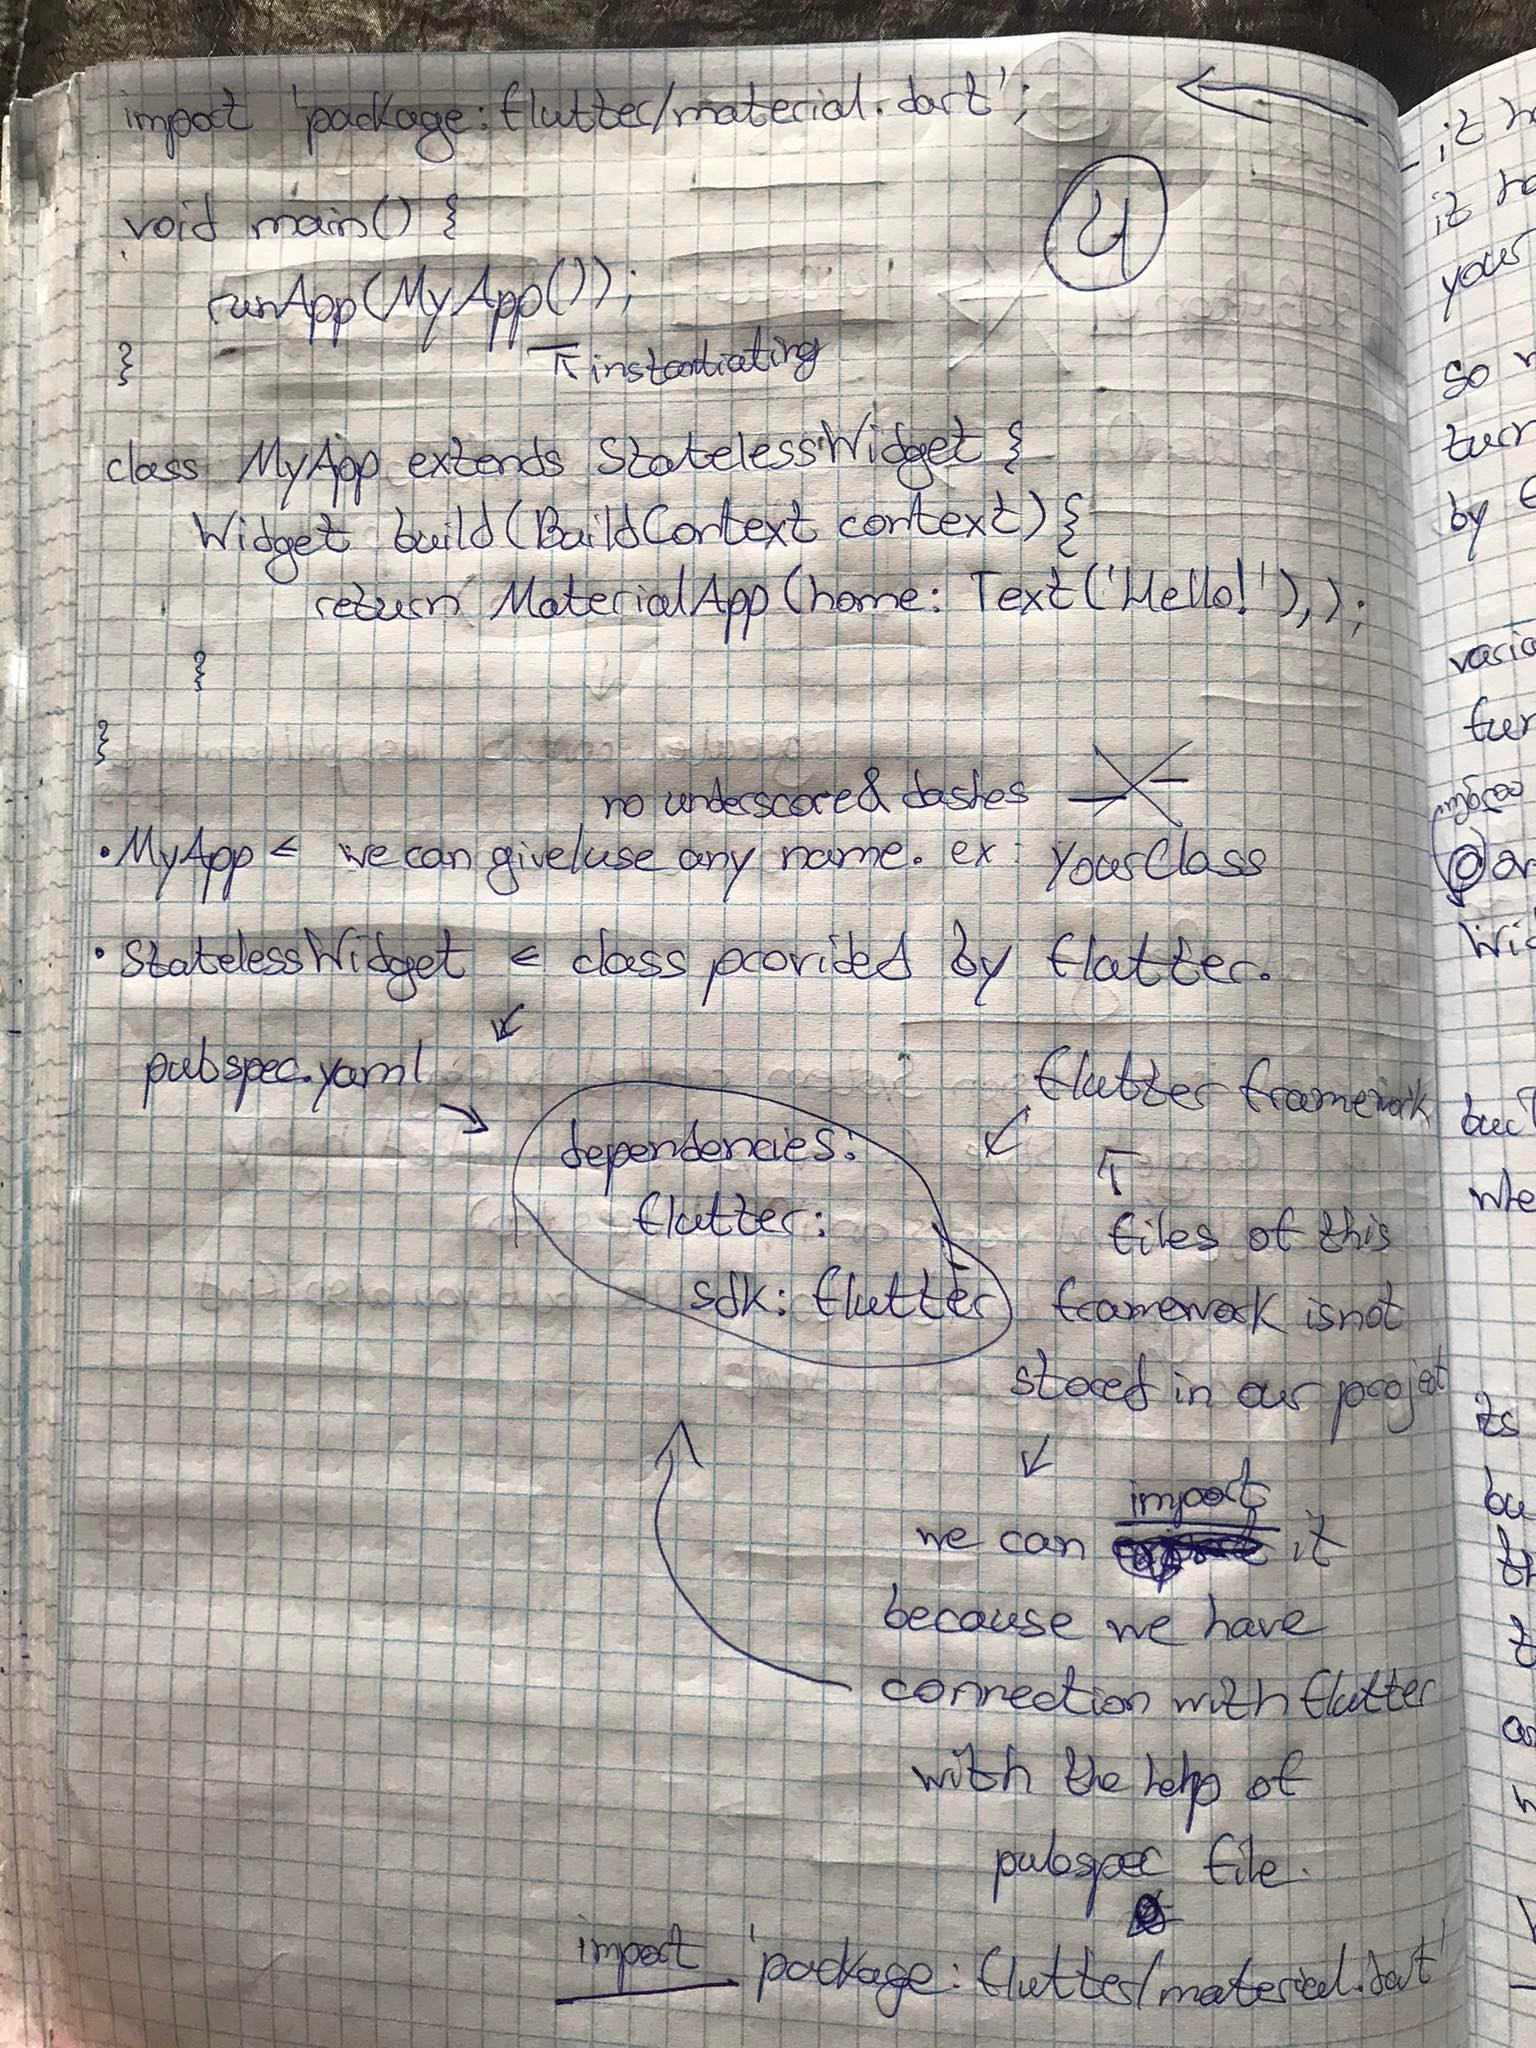 import 'package:flutter/material.dart';
4
void main() {
runApp(MyApp());
}
instantiating
class MyApp extends StatelessWidget {
Widget build(BuildContext context) {
return MaterialApp(home: Text('Hello!'),);
}
}
no underscore & dashes
• MyApp ← we can give/use any name. ex: YourClass
• StatelessWidget ← class provided by flutter.
pubspec.yaml
flutter framework
dependencies:
flutter:
files of this
sdk: flutter
framework is not
stored in our project
import
we can it
because we have
connection with flutter
with the help of
pubspec file.
import 'package:flutter/material.dart'
- it
it
your
so
by